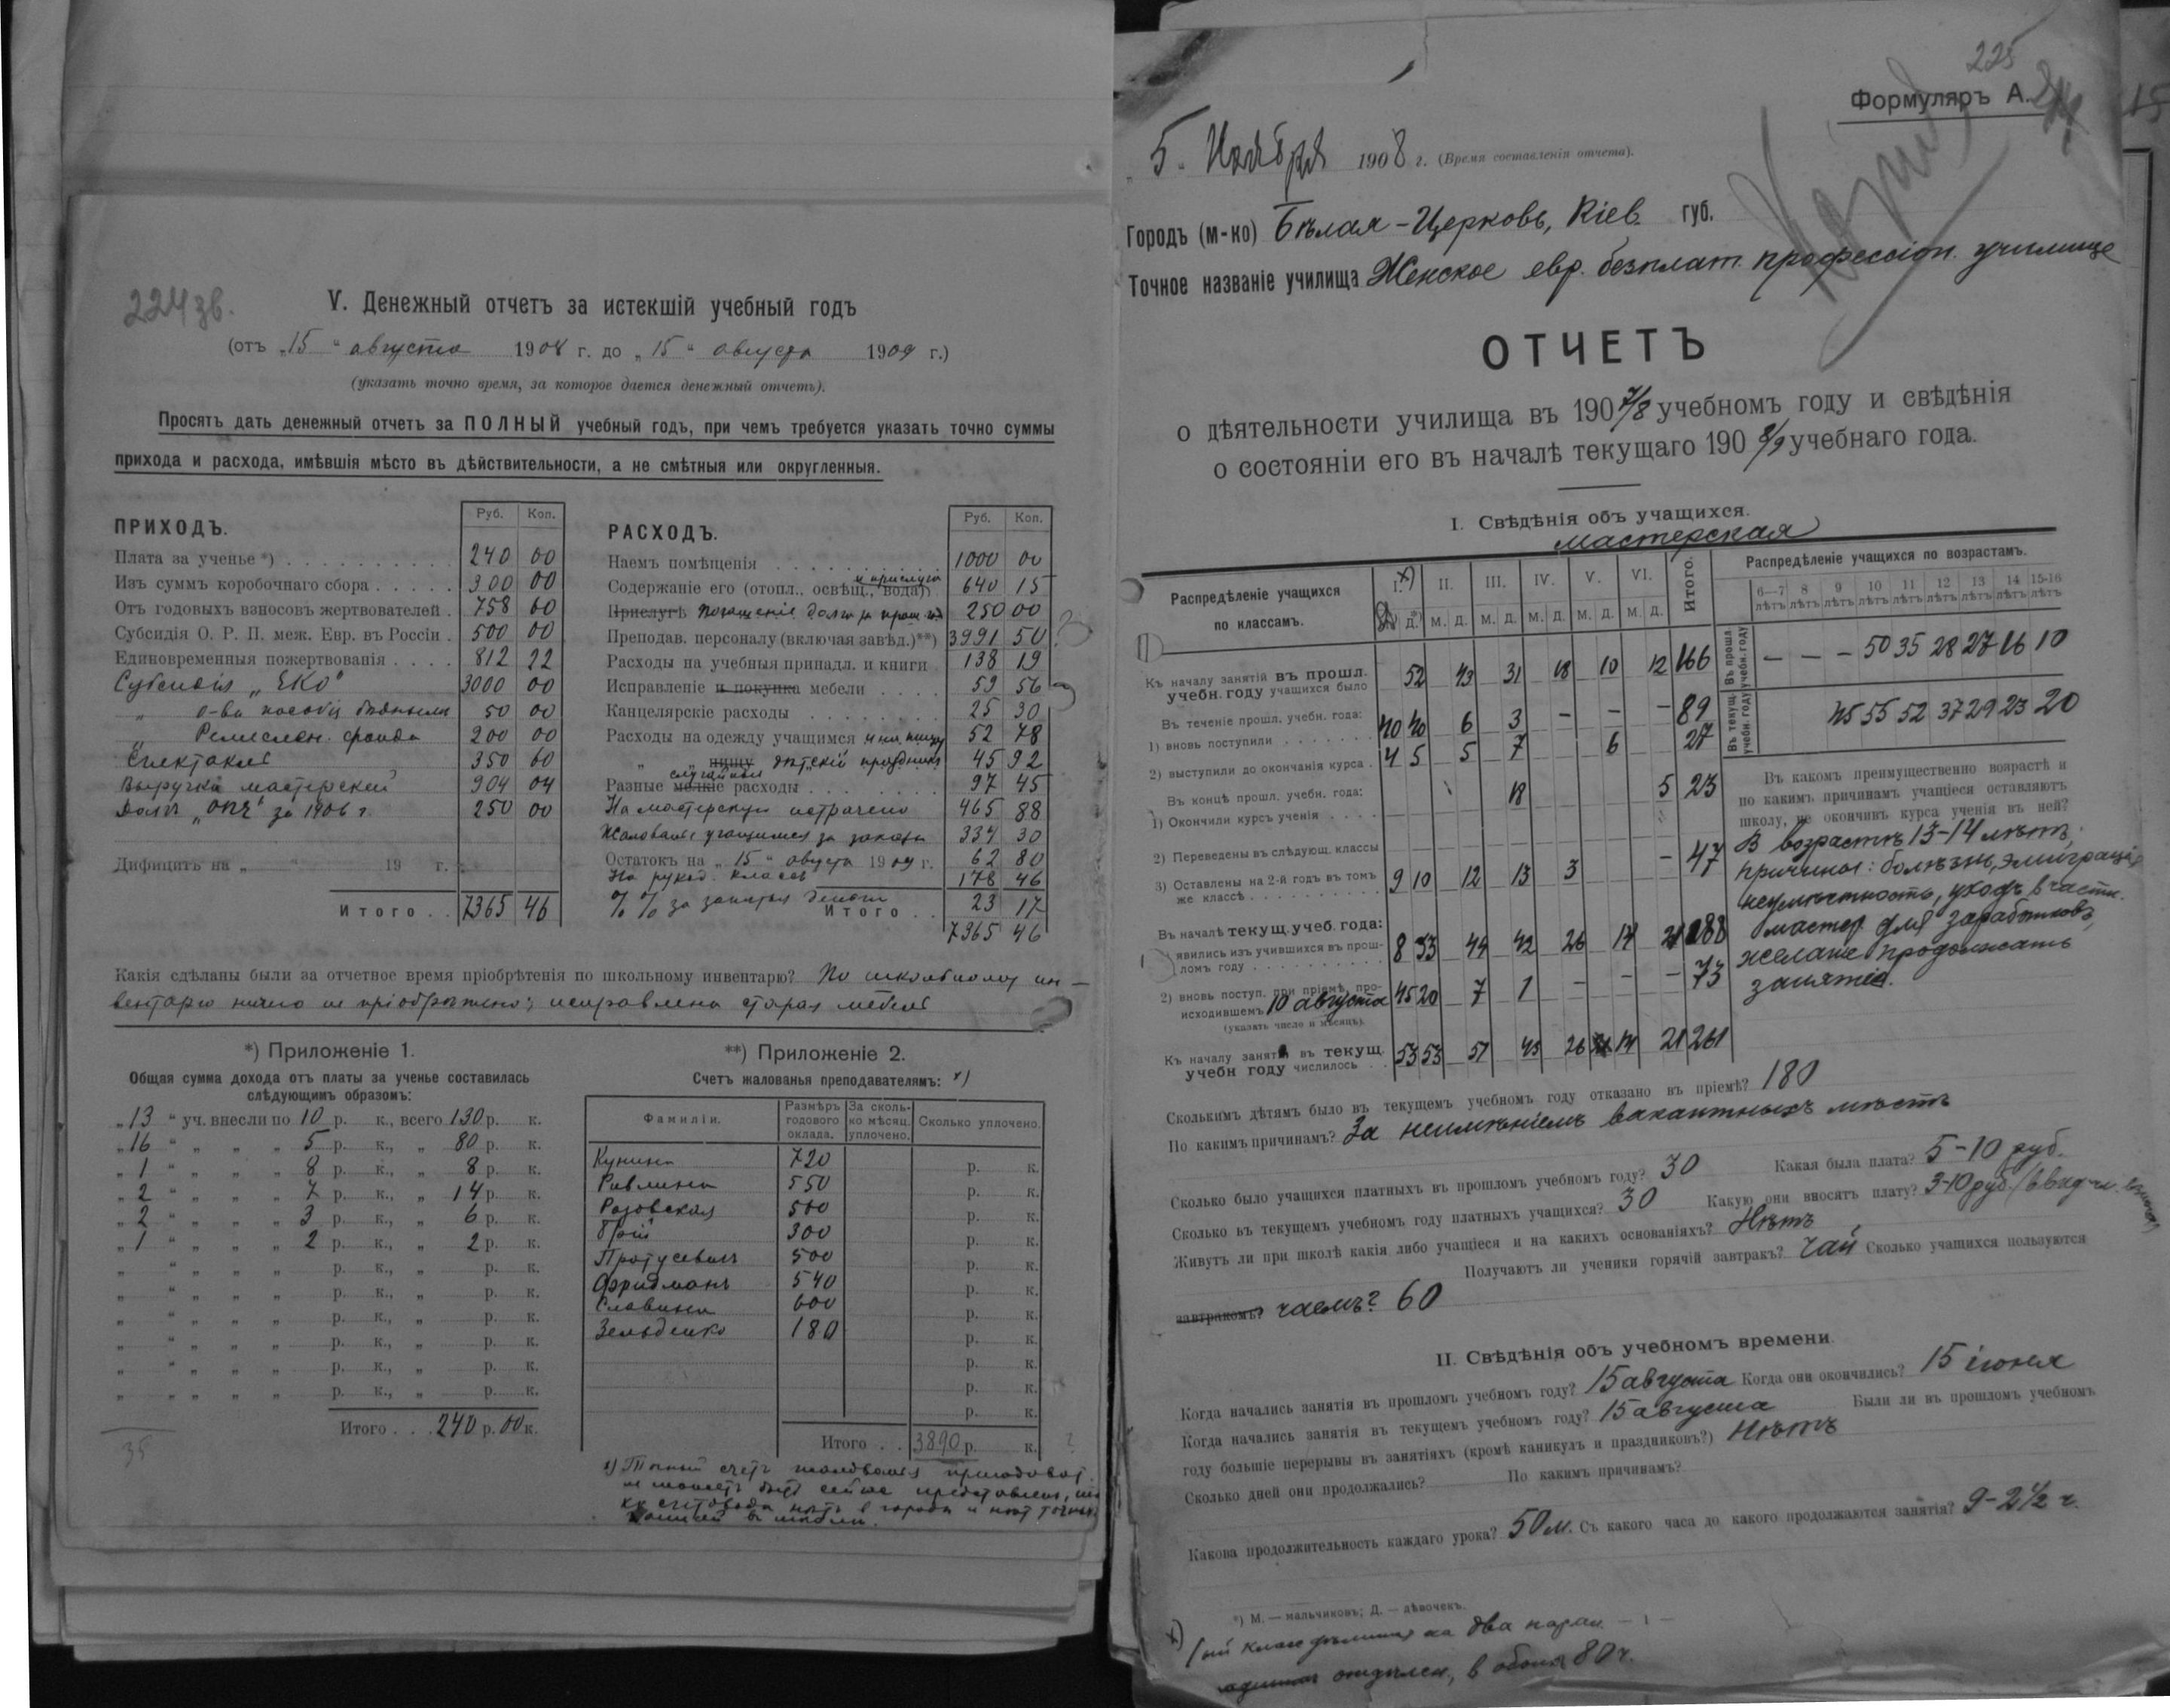 224 зв.
V. Денежный отчетъ за истекшій учебный годъ
(отъ „15“ августа 1908 г. до „15“ августа 1909 г.)
(указать точно время, за которое дается денежный отчетъ).
Просятъ дать денежный отчетъ за ПОЛНЫЙ учебный годъ, при чемъ требуется указать точно суммы
прихода и расхода, имѣвшія мѣсто въ дѣйствительности, а не смѣтныя или округленныя.
ПРИХОДЪ. Руб. Коп.
Плата за ученье *) 240 00
Изъ суммъ коробочнаго сбора 300 00
Отъ годовыхъ взносовъ жертвователей 758 60
Субсидія О. Р. П. меж. Евр. въ Россіи 500 00
Единовременныя пожертвованія 812 22
Субсидія „ЕКО“ 3000 00
„ о-ва пособія бѣднымъ 50 00
„ Ремеслен. фонда 200 00
Спектакль 350 60
Выручка мастерской 904 04
Долгъ „ОПЕ“ за 1906 г. 250 00
Дифицитъ на „ “ 19 г.
Итого 7365 46
РАСХОДЪ. Руб. Коп.
Наемъ помѣщенія 1000 00
Содержаніе его (отопл., освѣщ., вода) и прислуга 640 15
Прислугѣ Погашеніе долга 250 00
Преподав. персоналу (включая завѣд.)**) 3991 50
Расходы на учебныя принадл. и книги 138 19
Исправленіе и покупка мебели 59 56
Канцелярскіе расходы 25 30
Расходы на одежду учащимся и на пищу 52 78
„ „ пищу дѣтскій праздникъ 45 92
Разные мелкіе случайные расходы 97 45
На мастерскую истрачено 465 88
Жалованье учащимся за заказы 334 30
Остатокъ на „15“ августа 1909 г. 62 80
На рукод. классъ 178 46
% % за занятыя деньги 23 17
Итого 7365 46
Какія сдѣланы были за отчетное время пріобрѣтенія по школьному инвентарю? По школьному ин-
вентарю ничего не пріобрѣтено; исправлена старая мебель
*) Приложеніе 1.
Общая сумма дохода отъ платы за ученье составилась
слѣдующимъ образомъ:
„13“ уч. внесли по 10 р. к., всего 130 р. к.
„16“ „ „ „ 5 р. к., „ 80 р. к.
„1“ „ „ „ 8 р. к., „ 8 р. к.
„2“ „ „ „ 7 р. к., „ 14 р. к.
„2“ „ „ „ 3 р. к., „ 6 р. к.
„1“ „ „ „ 2 р. к., „ 2 р. к.
„ “ „ „ „ р. к., „ р. к.
„ “ „ „ „ р. к., „ р. к.
„ “ „ „ „ р. к., „ р. к.
„ “ „ „ „ р. к., „ р. к.
„ “ „ „ „ р. к., „ р. к.
„ „ „ „ „ р. к., „ р. к.
Итого . . . 240 р. 00 к.
35
**) Приложеніе 2.
Счетъ жалованья преподавателямъ: x)
Фамиліи. Размѣръ годового оклада. За сколько мѣсяц. уплочено. Сколько уплочено.
Кунина 720 р. к.
Равлина 550 р. к.
Розовская 500 р. к.
300 р. к.
500 р. к.
Фридманъ 540 р. к.
Славина 600 р. к.
Зельденко 180 р. к.
р. к.
р. к.
р. к.
Итого . . 3890 р. к.
x) Точный счетъ жалованья преподават.
не можетъ быть сейчас представленъ,
нѣтъ в городе и нет
225
Формуляръ А.
„5“ Ноября 1908 г. (Время составленія отчета).
Городъ (м-ко) Бѣлая-Церковь, Кіев. губ.
Точное названіе училища Женское евр. безплат. профессіон. училище
ОТЧЕТЪ
о дѣятельности училища въ 1907/8 учебномъ году и свѣдѣнія
о состояніи его въ началѣ текущаго 1908/9 учебнаго года.
I. Свѣдѣнія объ учащихся.
мастерская
Распредѣленіе учащихся по классамъ. I. x) II. III. IV. V. VI. Итого.
д. *) м. д. м. д. м. д. м. д. м. д.
Къ началу занятій въ прошл. учебн. году учащихся было 52 43 31 18 10 12 166
Въ теченіе прошл. учебн. года:
1) вновь поступили 40 40 6 3 – – – 89
2) выступили до окончанія курса 4 5 5 7 6 27
Въ концѣ прошл. учебн. года:
1) Окончили курсъ ученія 18 5 23
2) Переведены въ слѣдующ. классы
3) Оставлены на 2-й годъ въ томъ же классѣ 9 10 12 13 3 – 47
Въ началѣ текущ. учеб. года:
1) явились изъ учившихся въ прошломъ году 8 33 44 42 26 14 21 188
2) вновь поступ. при пріемѣ, происходившемъ 10 августа 45 20 7 1 – – – 73
(указать число и мѣсяцъ).
Къ началу занятій въ текущ. учебн году числилось 53 53 51 43 26 14 21 261
Распредѣленіе учащихся по возрастамъ.
6–7 лѣтъ 8 лѣтъ 9 лѣтъ 10 лѣтъ 11 лѣтъ 12 лѣтъ 13 лѣтъ 14 лѣтъ 15-16 лѣтъ
Въ прошл. учебн. году – – – 50 35 28 27 16 10
Въ текущ. учебн. году 45 55 52 37 29 23 20
Въ какомъ преимущественно возрастѣ и
по какимъ причинамъ учащіеся оставляютъ
школу, не окончивъ курса ученія въ ней?
В возрастѣ 13-14 лѣтъ;
причины: болѣзнь, эмиграція,
неуспѣшность, уходъ в частн.
мастер. для заработковъ,
желаніе продолжать
занятія.
Сколькимъ дѣтямъ было въ текущемъ учебномъ году отказано въ пріемѣ? 180
По какимъ причинамъ? За неимѣніемъ вакантныхъ мѣстъ
Сколько было учащихся платныхъ въ прошломъ учебномъ году? 30 Какая была плата? 5-10 руб.
Сколько въ текущемъ учебномъ году платныхъ учащихся? 30 Какую они вносятъ плату? 3-10 руб.
Живутъ ли при школѣ какія либо учащіеся и на какихъ основаніяхъ? Нѣтъ
Получаютъ ли ученики горячій завтракъ? Чай Сколько учащихся пользуются
завтракомъ? чаемъ? 60
II. Свѣдѣнія объ учебномъ времени.
Когда начались занятія въ прошломъ учебномъ году? 15 августа Когда они окончились? 15 іюня
Когда начались занятія въ текущемъ учебномъ году? 15 августа Были ли въ прошломъ учебномъ
году большіе перерывы въ занятіяхъ (кромѣ каникулъ и праздниковъ?) Нѣтъ
Сколько дней они продолжались? По какимъ причинамъ?
Какова продолжительность каждаго урока? 50 м. Съ какого часа до какого продолжаются занятія? 9-2½ ч.
*) М. — мальчиковъ; Д. — дѣвочекъ.
— 1 —
x) I-ый классъ дѣлится на два
отдѣлен., в обоихъ 80 ч.